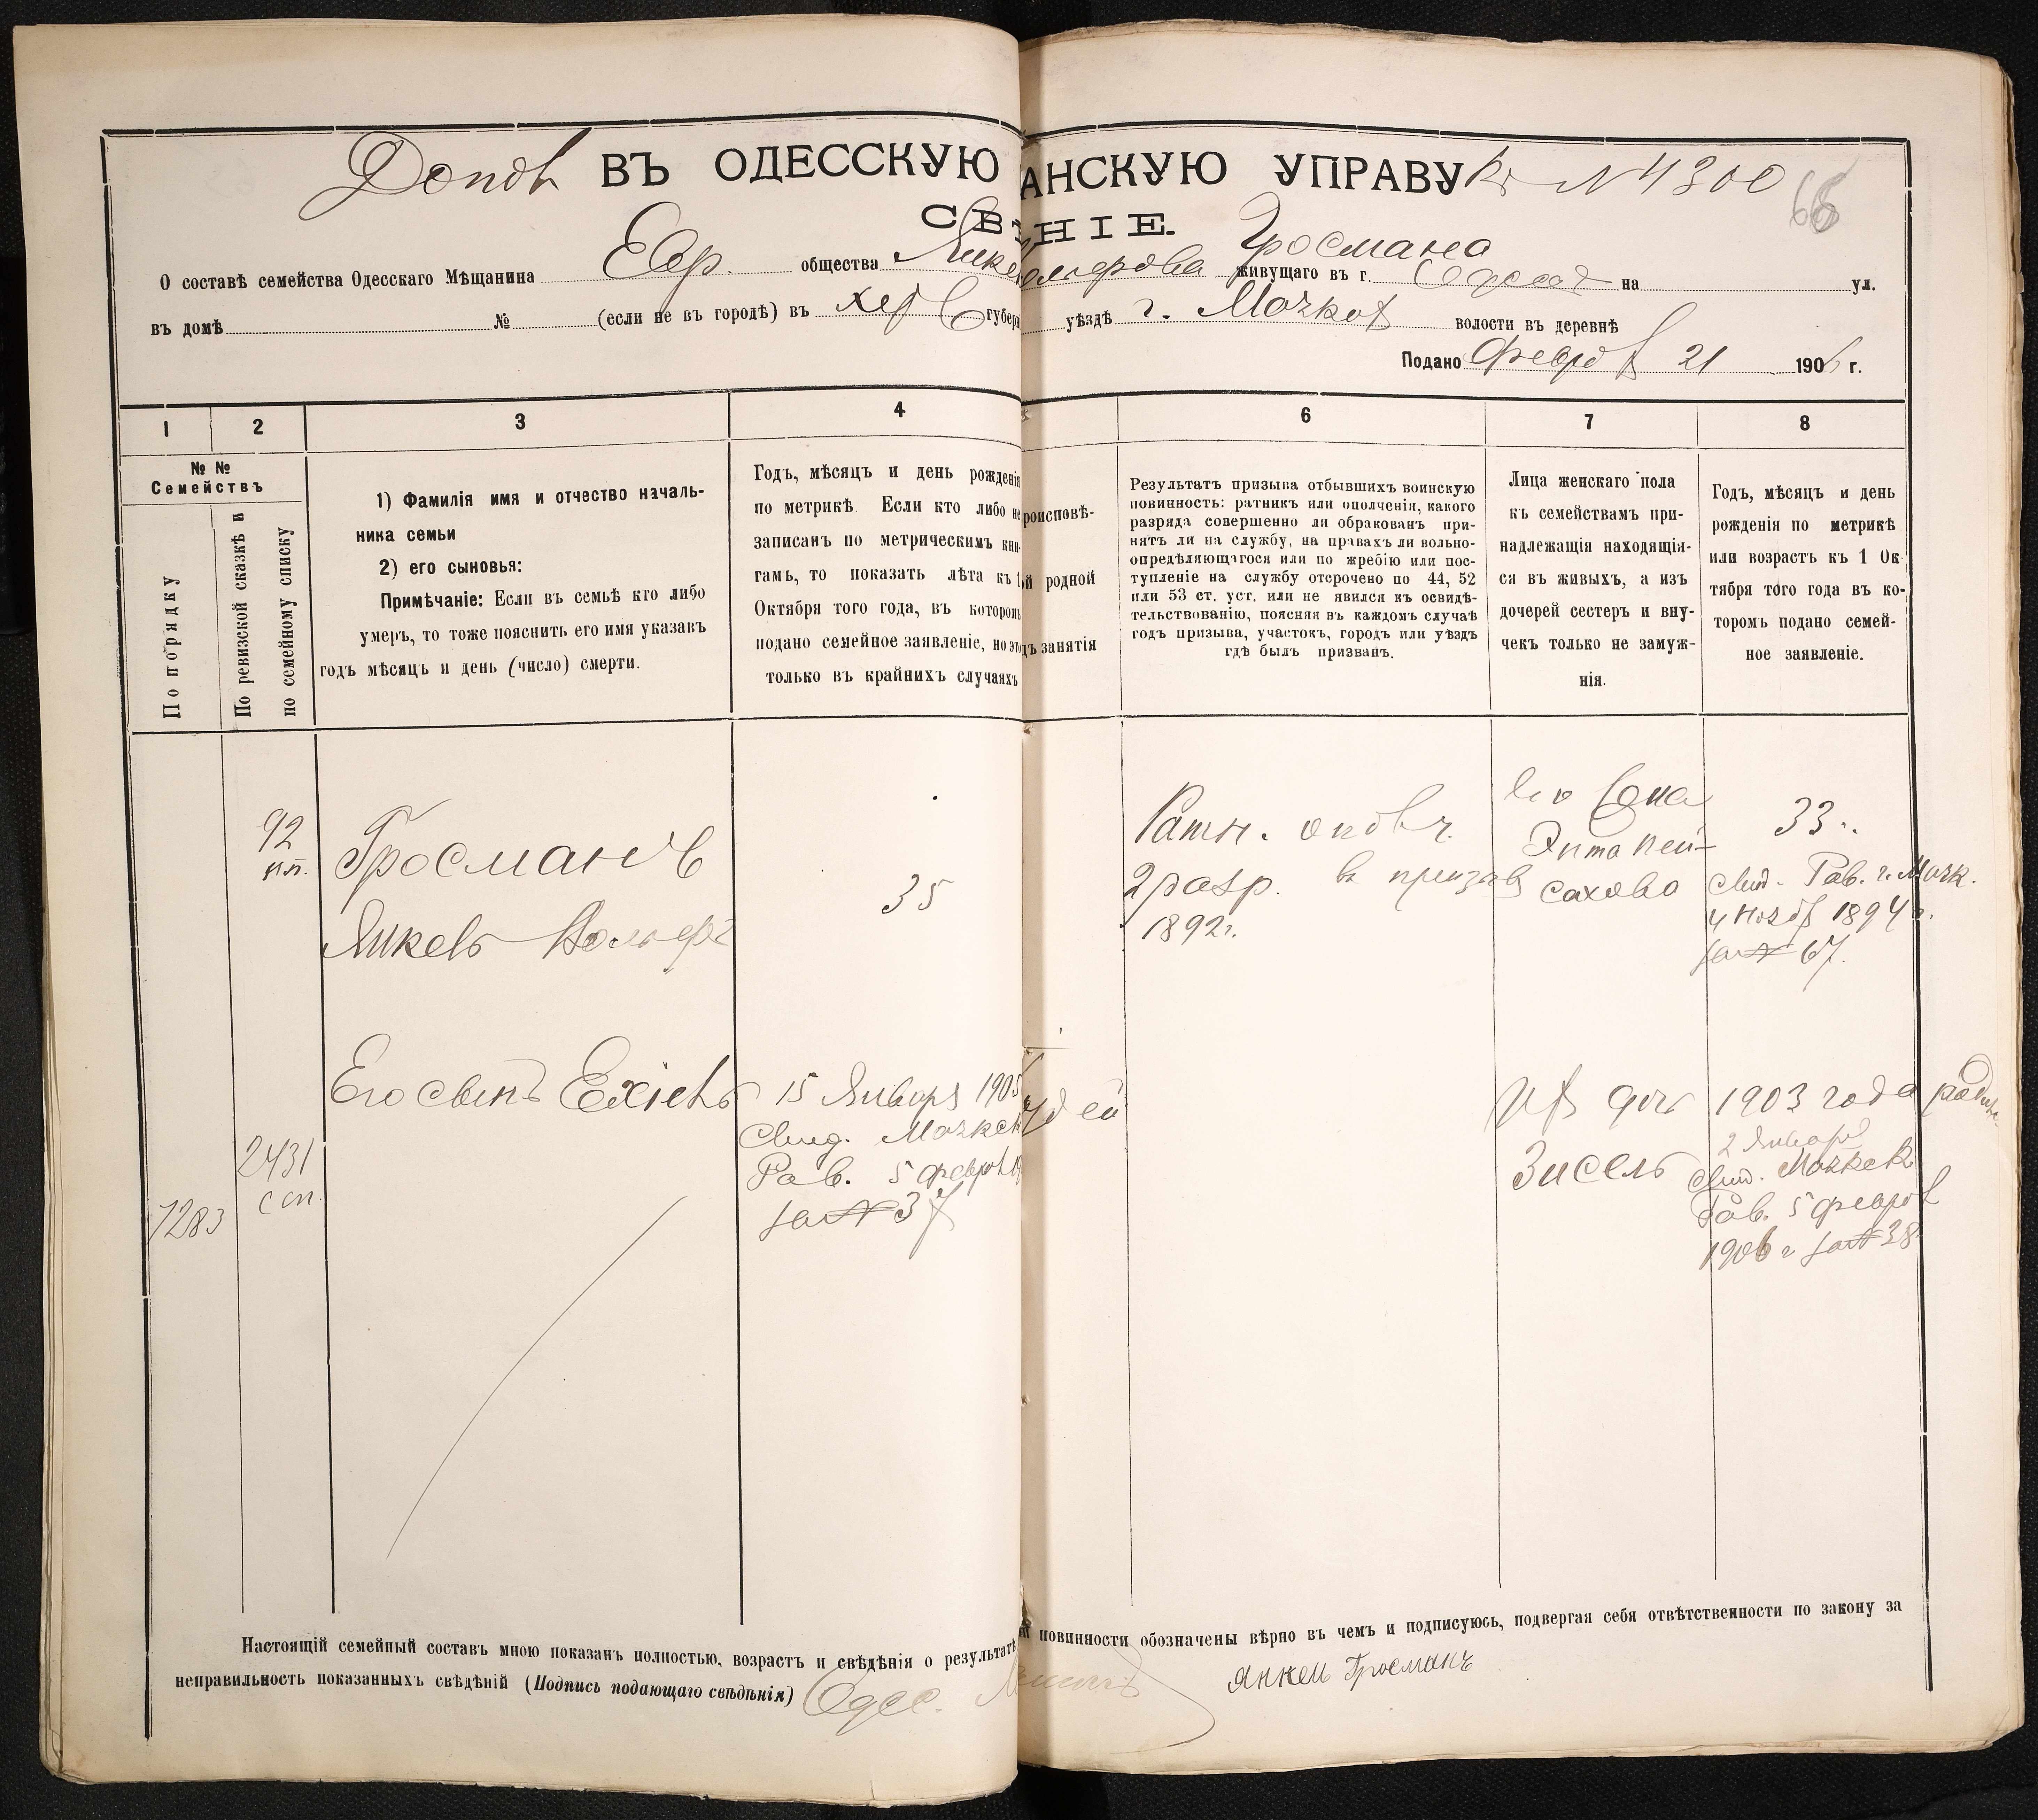 Допол ВЪ ОДЕССКУЮ АНСКУЮ УПРАВУ к № 4300
66
СВ НІЕ.
О составѣ семейства Одесскаго Мѣщанина Евр. общества Янке ольфова Гросмана живущаго въ г. Одессѣ на ул.
въ домѣ № (если не въ городѣ) въ Хер губер уѣздѣ г. волости въ деревнѣ
Подано 21 1906 г.
1 2 3 4 6 7 8
№ №
Семействъ
По порядку
По ревизской сказкѣ и
по семейному списку
1) Фамилія имя и отчество началь-
ника семьи
2) его сыновья:
Примѣчаніе: Если въ семьѣ кто либо
умеръ, то тоже пояснить его имя указавъ
годъ мѣсяцъ и день (число) смерти.
Годъ, мѣсяцъ и день рожденія
по метрикѣ. Если кто либо не
записанъ по метрическимъ кни-
гамъ, то показать лѣта къ 1
Октября того года, въ которомъ
подано семейное заявленіе, но это
только въ крайнихъ случаяхъ
роисповѣ-
й родной
дъ занятія
Результатъ призыва отбывшихъ воинскую
повинность: ратникъ или ополченія, какого
разряда совершенно ли обракованъ при-
нятъ ли на службу, на правахъ ли вольно-
опредѣляющагося или по жребію или пос-
тупленіе на службу отсрочено по 44, 52
или 53 ст. уст. или не явился къ освидѣ-
тельствованію, поясняя въ каждомъ случаѣ
годъ призыва, участокъ, городъ или уѣздъ
гдѣ былъ призванъ.
Лица женскаго пола
къ семействамъ при-
надлежащія находящія-
ся въ живыхъ, а изъ
дочерей сестеръ и вну-
чекъ только не замуж-
нія.
Годъ, мѣсяцъ и день
рожденія по метрикѣ
или возрастъ къ 1 Ок-
тября того года въ ко-
торомъ подано семей-
ное заявленіе.
92
Гросманъ
Янкель Вольфъ
35
Ратн. опол.
2 разр. въ призыв
1892 г.
Его жена
Энта Пей-
сахова
33
Свид. Рав. г.
4 Нояб 1894 г.
за № 67.
7283
2431
сп.
Его сынъ Ехіель
15 Января 1905
Свид.
Рав. 5 феврал
за № 37
Іудей
Их дочь
Зисель
1903 года
2 Января
Свид.
Рав. 5 феврал
1906 г за № 38
Настоящій семейный составъ мною показанъ полностью, возрастъ и свѣдѣнія о результатѣ повинности обозначены вѣрно въ чемъ и подписуюсь, подвергая себя отвѣтственности по закону за
неправильность показанныхъ свѣдѣній (Подпись подающаго свѣдѣнія) Одес. Янкель Гросманъ